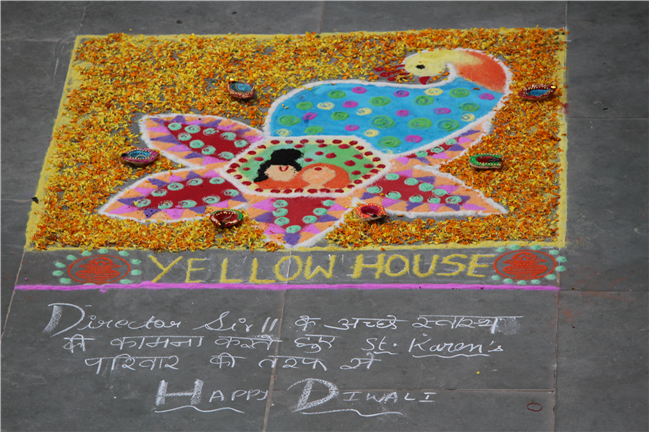 YELLOW HOUSE
Director Sir || के अच्छे स्वास्थ्य
की कामना करते हुए St. Karen's
परिवार की तरफ से
HAPPY DIWALI